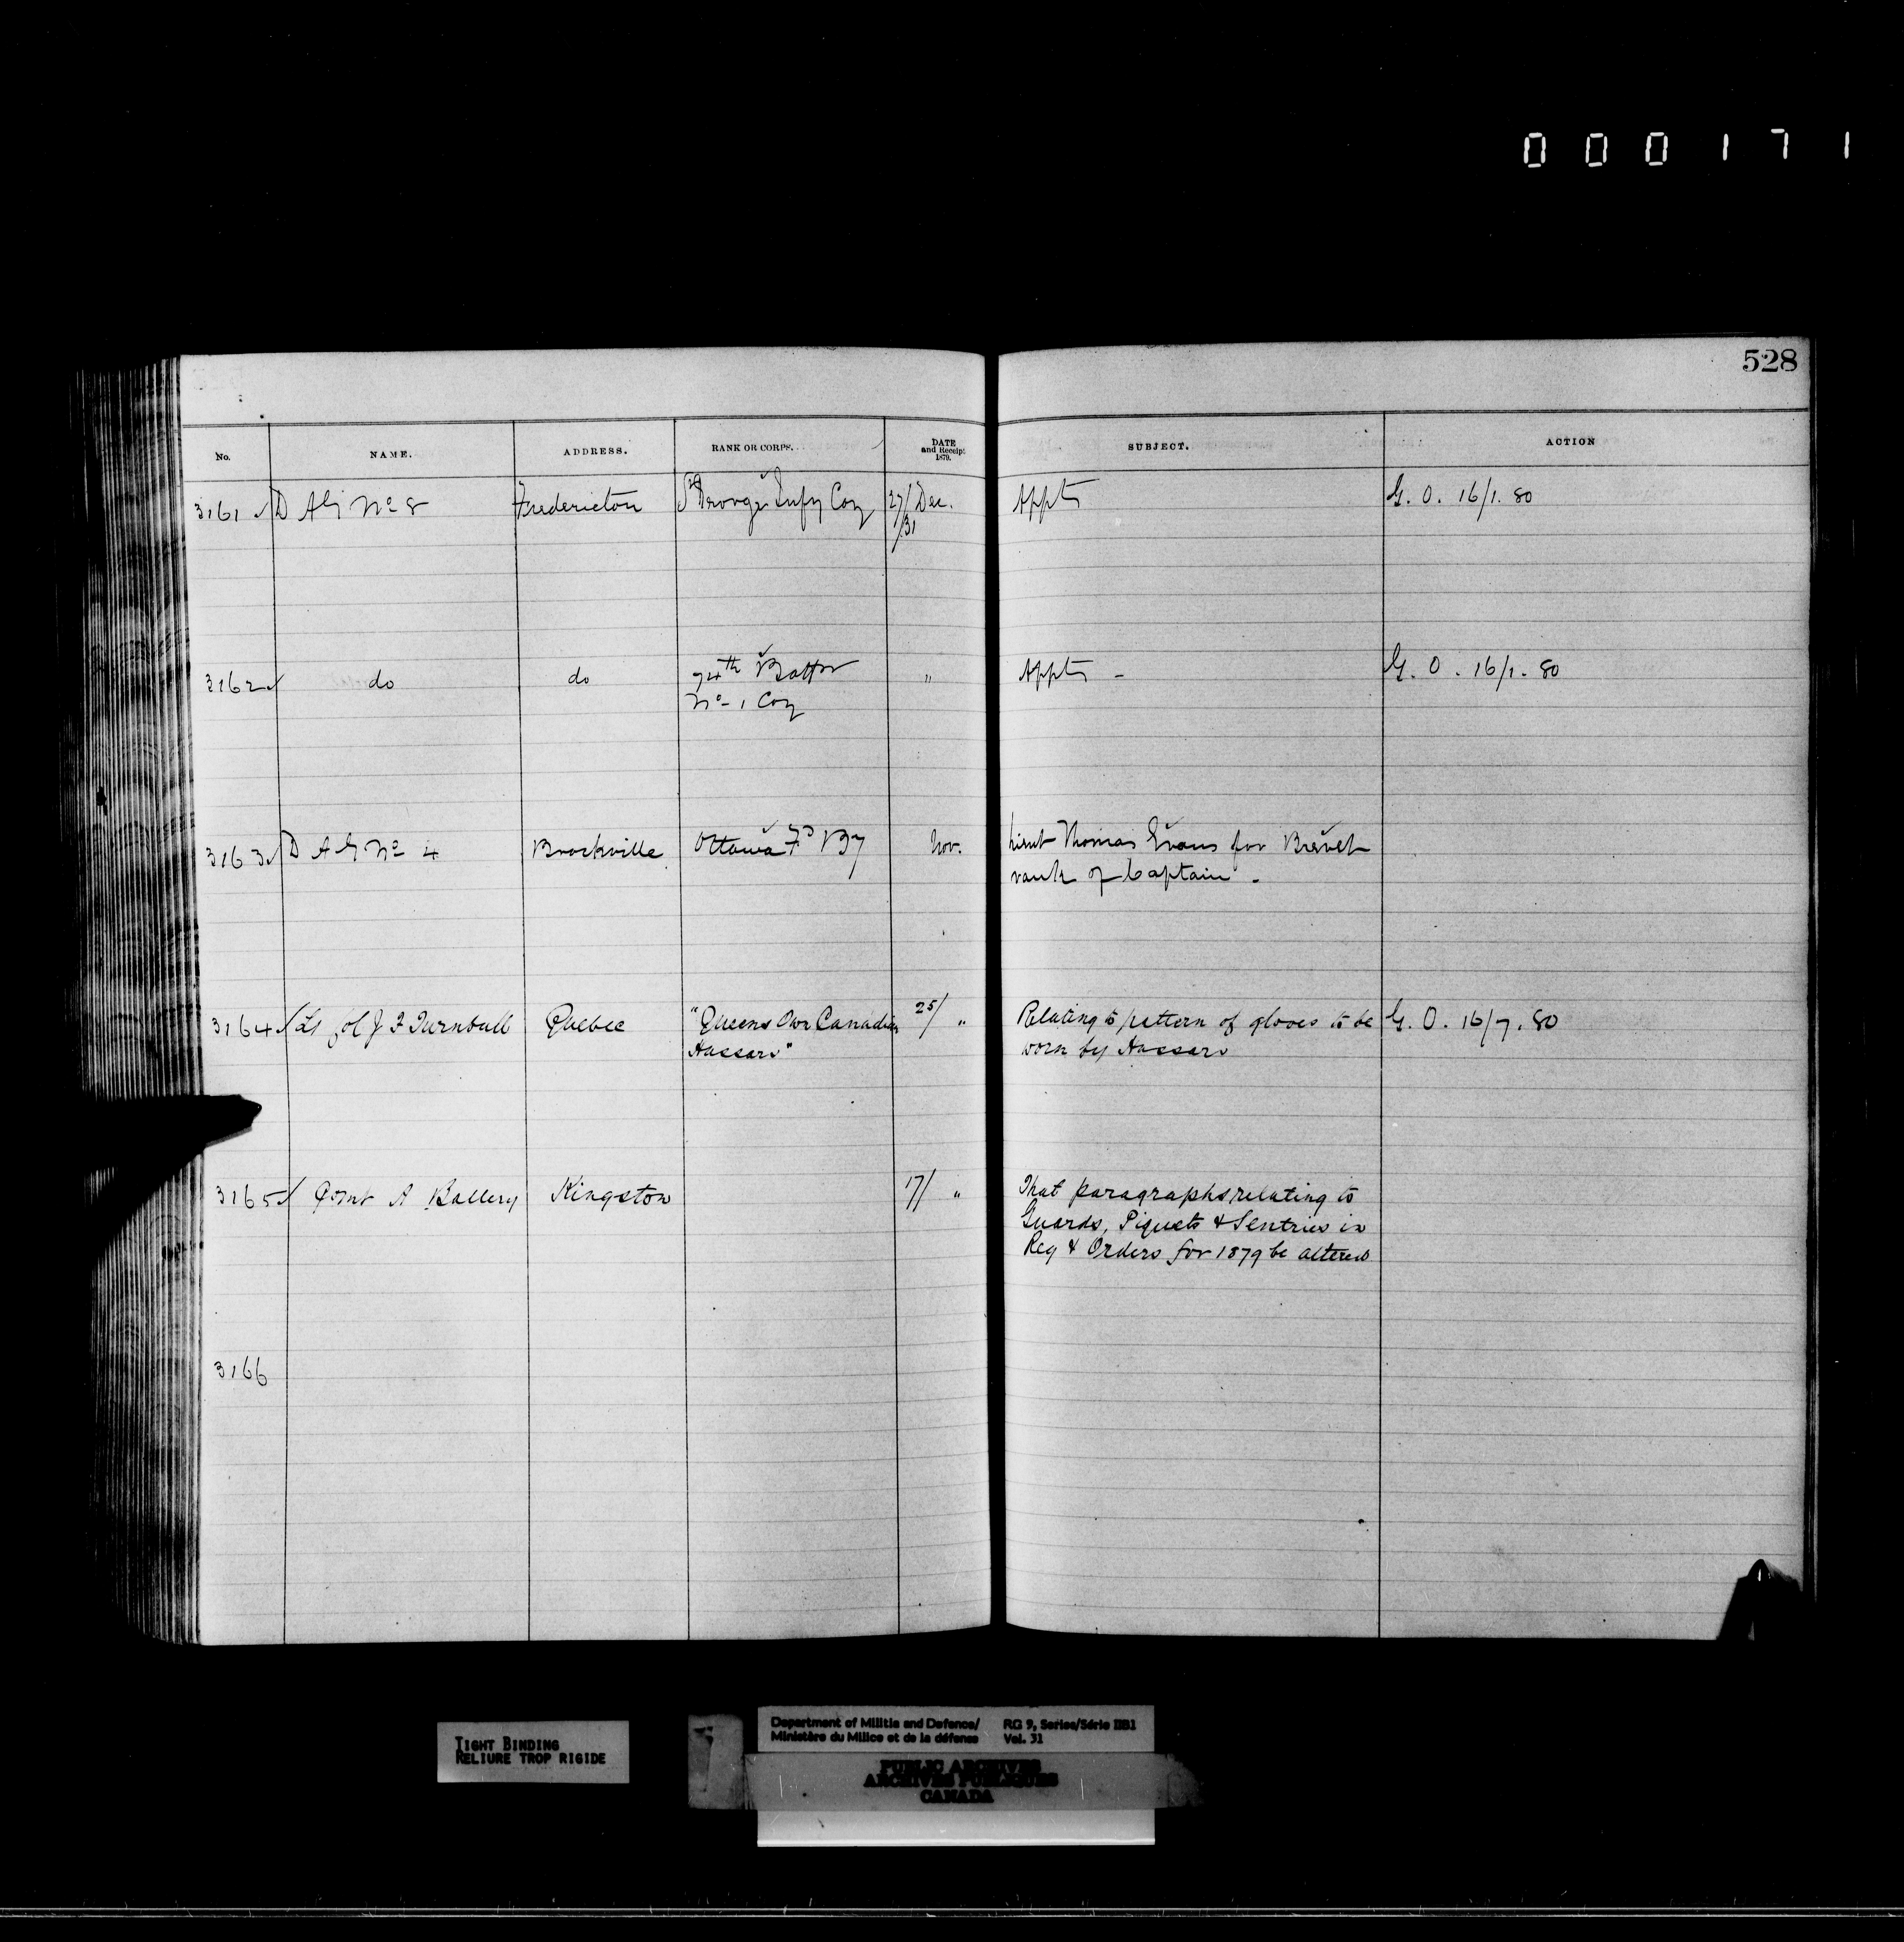 000171
528
No. NAME. ADDRESS. RANK OR CORPS. DATE and Receipt 1879. SUBJECT. ACTION
3161 ✓ D A G No 8 Fredericton St George Infy Coy 27/ Dec. Appts G. O. 16/1. 80
/31
3162 ✓ do do 74th Battn " Appts - G. O. 16/1. 80
No 1 Coy
3163 ✓ D A G No 4 Brockville Ottawa Fd By Nov. Lieut Thomas Evans for Brevet
rank of Captain.
3164 ✓ Lt Col J F Turnbull Quebec "Queens Own Canadian 25/ " Relating to pattern of gloves to be G. O. 16/7. 80
Hussars" worn by Hussars
3165 ✓ Comt A Battery Kingston 17/ " That paragraphs relating to
Guards, Piquets & Sentries in
Reg & Orders for 1879 be altered
3166
TIGHT BINDING
RELIURE TROP RIGIDE
Department of Militia and Defence/ RG 9, Series/Série IIB1
Ministère du Milice et de la défense Vol. 31
PUBLIC ARCHIVES
ARCHIVES PUBLIQUES
CANADA